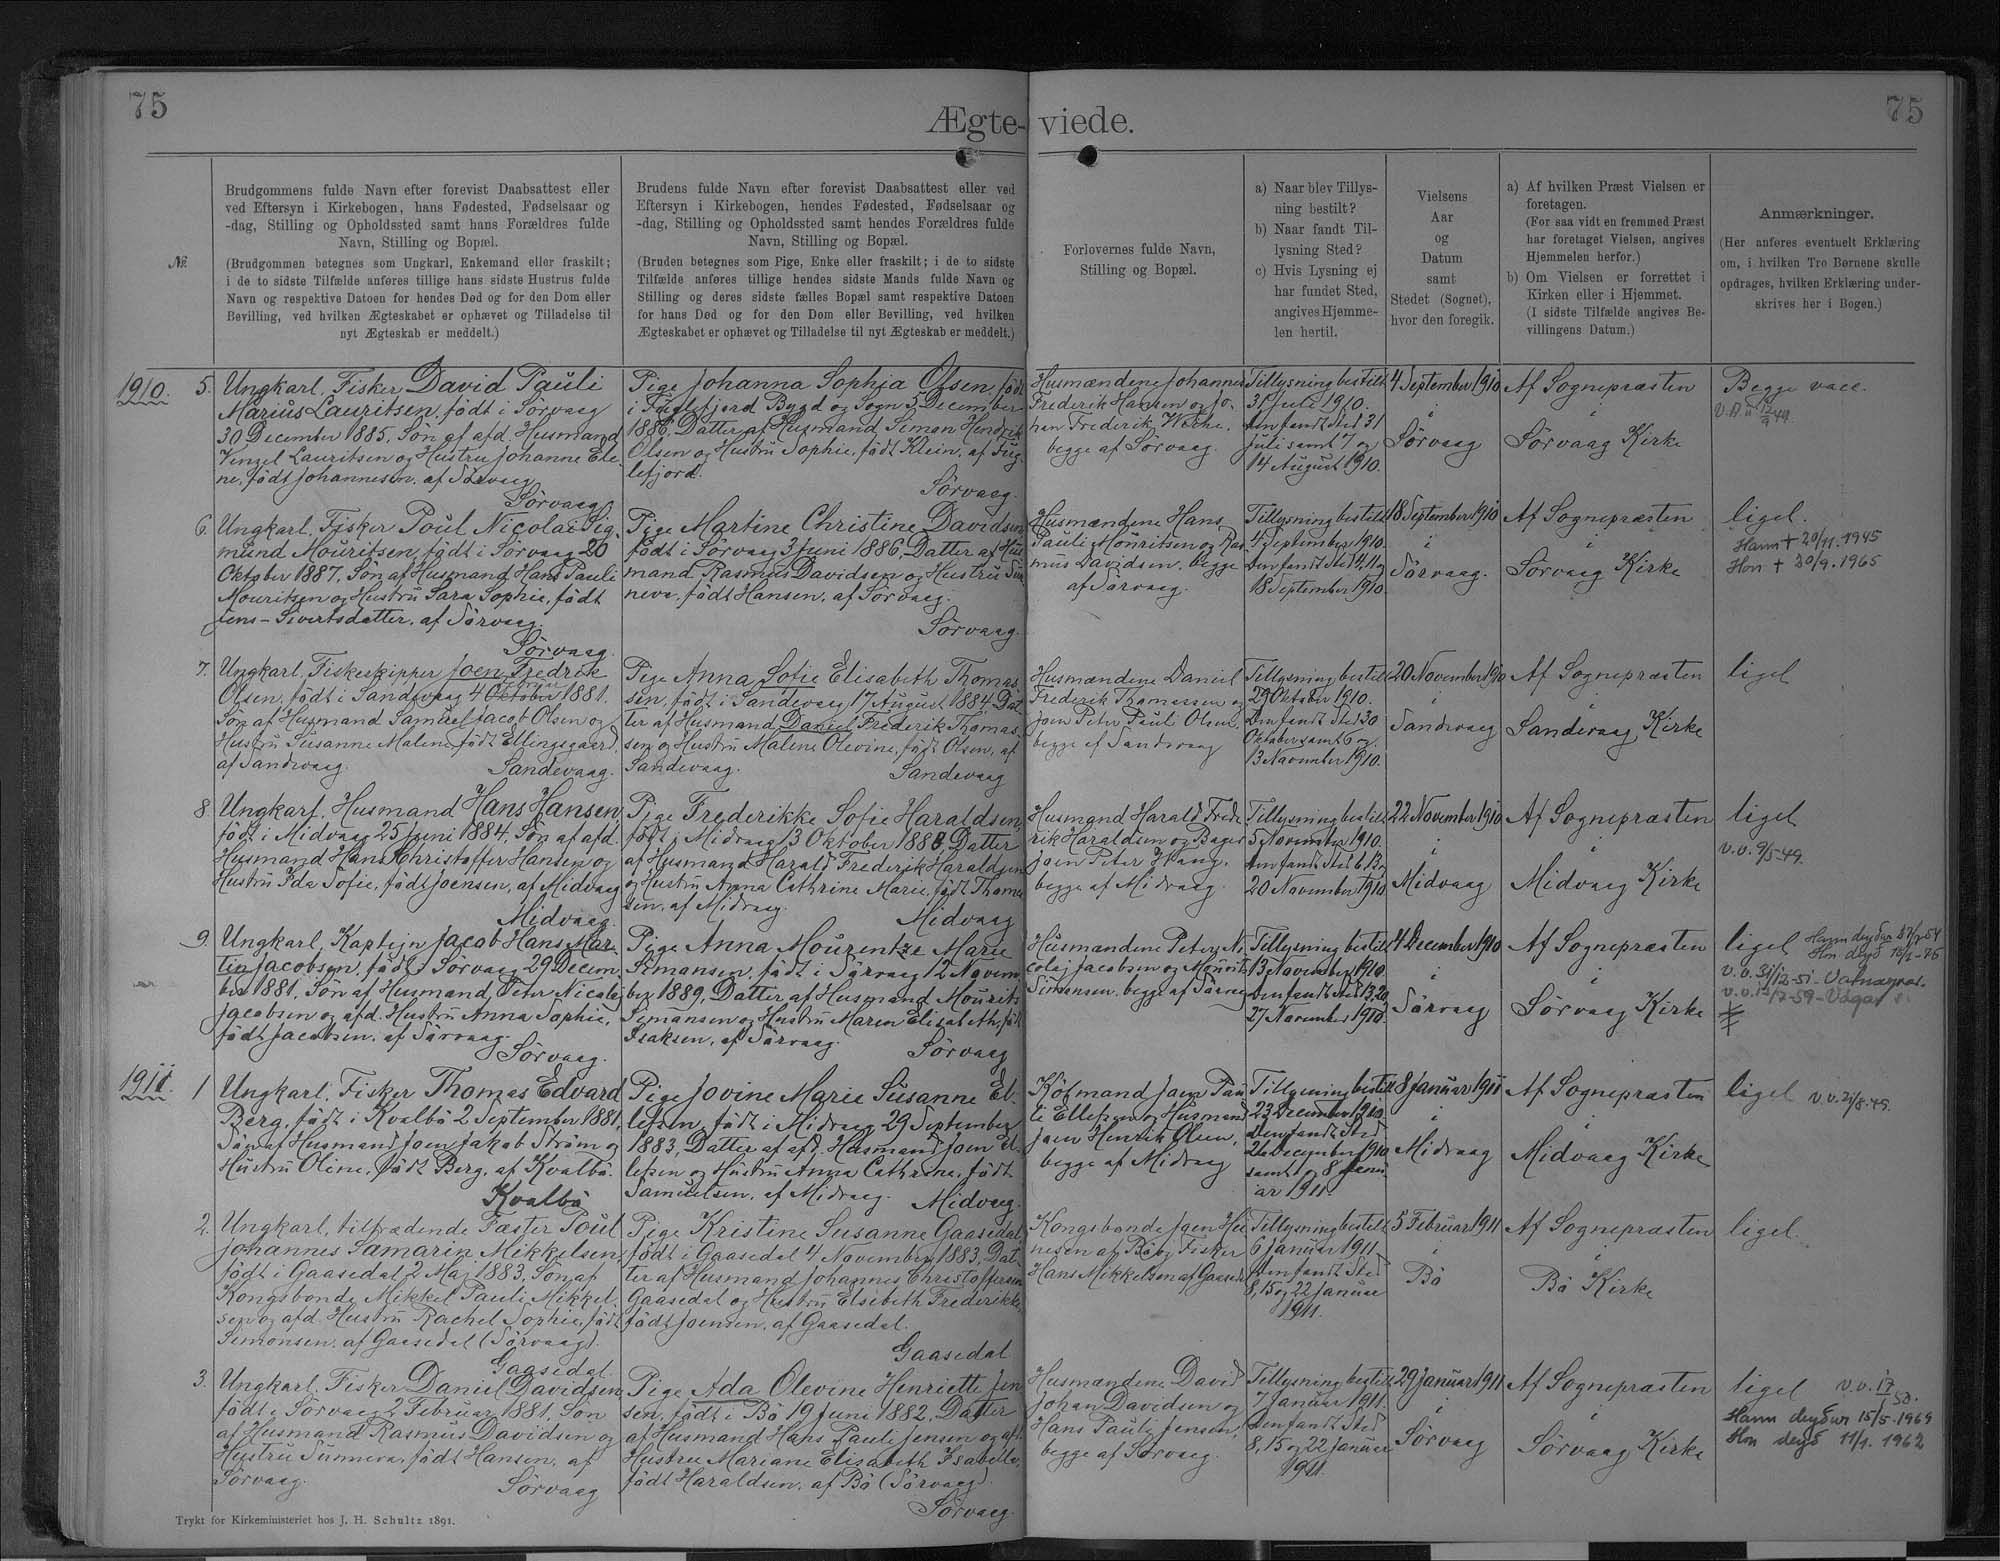 75
75
Ægte-viede.
№.
Brudgommens fulde Navn efter forevist Daabsattest eller
ved Eftersyn i Kirkebogen, hans Fødested, Fødselsaar og
-dag, Stilling og Opholdssted samt hans Forældres fulde
Navn, Stilling og Bopæl.
(Brudgommen betegnes som Ungkarl, Enkemand eller fraskilt;
i de to sidste Tilfælde anføres tillige hans sidste Hustrus fulde
Navn og respektive Datoen for hendes Død og for den Dom eller
Bevilling, ved hvilken Ægteskabet er ophævet og Tilladelse til
nyt Ægteskab er meddelt.)
Brudens fulde Navn efter forevist Daabsattest eller ved
Eftersyn i Kirkebogen, hendes Fødested, Fødselsaar og
-dag, Stilling og Opholdssted samt hendes Forældres fulde
Navn, Stilling og Bopæl.
(Bruden betegnes som Pige, Enke eller fraskilt; i de to sidste
Tilfælde anføres tillige hendes sidste Mands fulde Navn og
Stilling og deres sidste fælles Bopæl samt respektive Datoen
for hans Død og for den Dom eller Bevilling, ved hvilken
Ægteskabet er ophævet og Tilladelse til nyt Ægteskab er meddelt.)
Forlovernes fulde Navn,
Stilling og Bopæl.
a) Naar blev Tillys-
ning bestilt?
b) Naar fandt Til-
lysning Sted?
c) Hvis Lysning ej
har fundet Sted,
angives Hjemme-
len hertil.
Vielsens
Aar
og
Datum
samt
Stedet (Sognet),
hvor den foregik.
a) Af hvilken Præst Vielsen er
foretagen.
(For saa vidt en fremmed Præst
har foretaget Vielsen, angives
Hjemmelen herfor.)
b) Om Vielsen er forrettet i
Kirken eller i Hjemmet.
(I sidste Tilfælde angives Be-
villingens Datum.)
Anmærkninger.
(Her anføres eventuelt Erklæring
om, i hvilken Tro Børnene skulle
opdrages, hvilken Erklæring under-
skrives her i Bogen.)
1910. 5. Ungkarl, Fisker David Pauli
Marius Lauritsen, født i Sörvaag
30 December 1885, Søn af afd. Husmand
Venzel Lauritsen og Hustru Johanne Ele-
ne, født Johannesen, af Sörvaag
Sörvaag
Pige Johanna Sophia Olsen, født
i Fuglefjord Bygd og Sogn 5 December
1886, Datter af Husmand Simon Hendrik
Olsen og Hustru Sophie, født Klein, af Fug-
lefjord.
Sörvaag.
Husmændene Johannes
Frederik Hansen og Jo-
han Frederik
begge af Sörvaag.
Tillysning bestilt
31 Juli 1910.
Den fandt Sted 31
Juli samt 7 og
14 August 1910.
4 September 1910
i
Sörvaag
Af Sognepræsten
i
Sörvaag Kirke
Begge vacc.
6. Ungkarl, Fisker Poul Nicolai Sig-
mund Mouritsen, født i Sörvaag 20
Oktober 1887, Søn af Husmand Hans Pauli
Mouritsen og Hustru Sara Sophie, født
Jens-Sivertsdatter, af Sörvaag.
Sörvaag.
Pige Martine Christine Davidsen
født i Sörvaag 3 Juni 1886, Datter af Hus
mand Rasmus Davidsen og Hustru Sun
neva, født Hansen, af Sörvaag.
Sörvaag.
Husmændene Hans
Pauli Mouritsen og Ras
mus Davidsen, begge
af Sörvaag.
Tillysning bestilt
4 September 1910.
Den fandt Sted 4, 11 og
18 September 1910.
18 September 1910
i
Sörvaag.
Af Sognepræsten
i
Sörvaag Kirke
ligel.
Hann + 20/11. 1945
Hon + 20/9. 1965
7. Ungkarl, Fiskeskipper Joen Fredrik
Olsen, født i Sandevaag 4 Oktober 1881.
Søn af Husmand Samuel Jacob Olsen og
Hustru Susanne Malene, født Ellingsgaard,
af Sandevaag.
Sandevaag.
Pige Anna Sofie Elisabeth Thomas-
sen, født i Sandevaag 17 August 1884, Dat-
ter af Husmand Daniel Frederik Thomas-
sen og Hustru Malene Olevine, født Olsen, af
Sandevaag.
Sandevaag
Husmændene Daniel
Frederik Thomassen og
Joen Peter Pauli Olsen,
begge af Sandevaag
Tillysning bestilt
29 Oktober 1910.
Den fandt Sted 30
Oktober samt 6 og
13 November 1910.
20 November 1910
i
Sandevaag
Af Sognepræsten
i
Sandevaag Kirke
ligel
8. Ungkarl, Husmand Hans Hansen,
født i Midvaag 25 Juni 1884, Søn af afd.
Husmand Hans Christoffer Hansen og
Hustru Ida Sofie, født Joensen, af Midvaag
Midvaag
Pige Frederikke Sofie Haraldsen,
født i Midvaag 13 Oktober 1888, Datter
af Husmand Harald Frederik Haraldsen
og Hustru Anna Cathrine Marie, født Thoma
sen, af Midvaag.
Midvaag
Husmand Harald Frede
rik Haraldsen og Bager
Joen Peter Wang,
begge af Midvaag.
Tillysning bestilt
5 November 1910.
Den fandt Sted 6, 13 og
20 November 1910
22 November 1910
i
Midvaag
Af Sognepræsten
i
Midvaag Kirke
ligel
v.v. 9/5-49.
9. Ungkarl, Kaptejn Jacob Hans Mar-
tin Jacobsen, født i Sörvaag 29 Decem-
ber 1881, Søn af Husmand Peter Nicolaj
Jacobsen og afd. Hustru Anna Sophie,
født Jacobsen, af Sörvaag.
Sörvaag.
Pige Anna Mourentze Marie
Simansen, født i Sörvaag 12 Novem-
ber 1889, Datter af Husmand Mourits
Simansen og Hustru Maren Elisabeth, født
Isaksen, af Sörvaag.
Sörvaag
Husmændene Peter Ni
colaj Jacobsen og Mourits
Simansen, begge af Sörvaag
Tillysning bestilt
13 November 1910.
Den fandt Sted 13, 20
27 November 1910.
4 December 1910
i
Sörvaag
Af Sognepræsten
i
Sörvaag Kirke
ligel
1911. 1 Ungkarl, Fisker Thomas Edvard
Berg, født i Kvalbö 2 September 1881,
Søn af Husmand Joen Jakob Ström og
Hustru Oline, født Berg, af Kvalbö.
Kvalbö
Pige Jovine Marie Susanne El-
lefsen, født i Midvaag 29 September
1883, Datter af afd. Husmand Joen El-
lefsen og Hustru Anna Cathrine, født
Samuelsen, af Midvaag.
Midvaag.
Købmand Joen Pau
li Ellefsen og Husmand
Joen Henrik Olsen,
begge af Midvaag
Tillysning bestilt
23 December 1910.
Den fandt Sted
26 December 1910
samt 1 og 8 Janu
ar 1911.
8 Januar 1911
i
Midvaag
Af Sognepræsten
i
Midvaag Kirke
ligel
2. Ungkarl, tiltrædende Fæster Poul
Johannes Samarin Mikkelsen,
født i Gaasedal 2 Maj 1883, Søn af
Kongsbonde Mikkel Pauli Mikkel-
sen og afd. Hustru Rachel Sophie, født
Simonsen, af Gaasedal (Sörvaag).
Gaasedal
Pige Kristine Susanne Gaasedal,
født i Gaasedal 4 November 1883, Dat-
ter af Husmand Johannes Christoffersen
Gaasedal og Hustru Elsebeth Frederikke,
født Joensen, af Gaasedal.
Gaasedal
Kongsbonde Joen
af Bö og Fisker
Hans Mikkelsen af Gaasedal
Tillysning bestilt
6 Januar 1911.
Den fandt Sted
8, 15 og 22 Januar
1911.
5 Februar 1911
i
Bö
Af Sognepræsten
i
Bö Kirke
ligel.
3. Ungkarl, Fisker Daniel Davidsen
født i Sörvaag 2 Februar 1881, Søn
af Husmand Rasmus Davidsen og
Hustru Sunneva, født Hansen, af
Sörvaag.
Sörvaag
Pige Ada Olevine Henriette Jen
sen, født i Bö 19 Juni 1882, Datter
af Husmand Hans Pauli Jensen og afd.
Hustru Mariane Elisabeth Isabelle,
født Haraldsen, af Bö (Sörvaag).
Sörvaag.
Husmændene David
Johan Davidsen og
Hans Pauli Jensen,
begge af Sörvaag.
Tillysning bestilt
7 Januar 1911.
Den fandt Sted
8, 15 og 22 Januar
1911.
29 Januar 1911
i
Sörvaag
Af Sognepræsten
i
Sörvaag Kirke
ligel
Hann deyður 15/5-1969
Hon deyð 11/1. 1962
Trykt for Kirkeministeriet hos J. H. Schultz 1891.